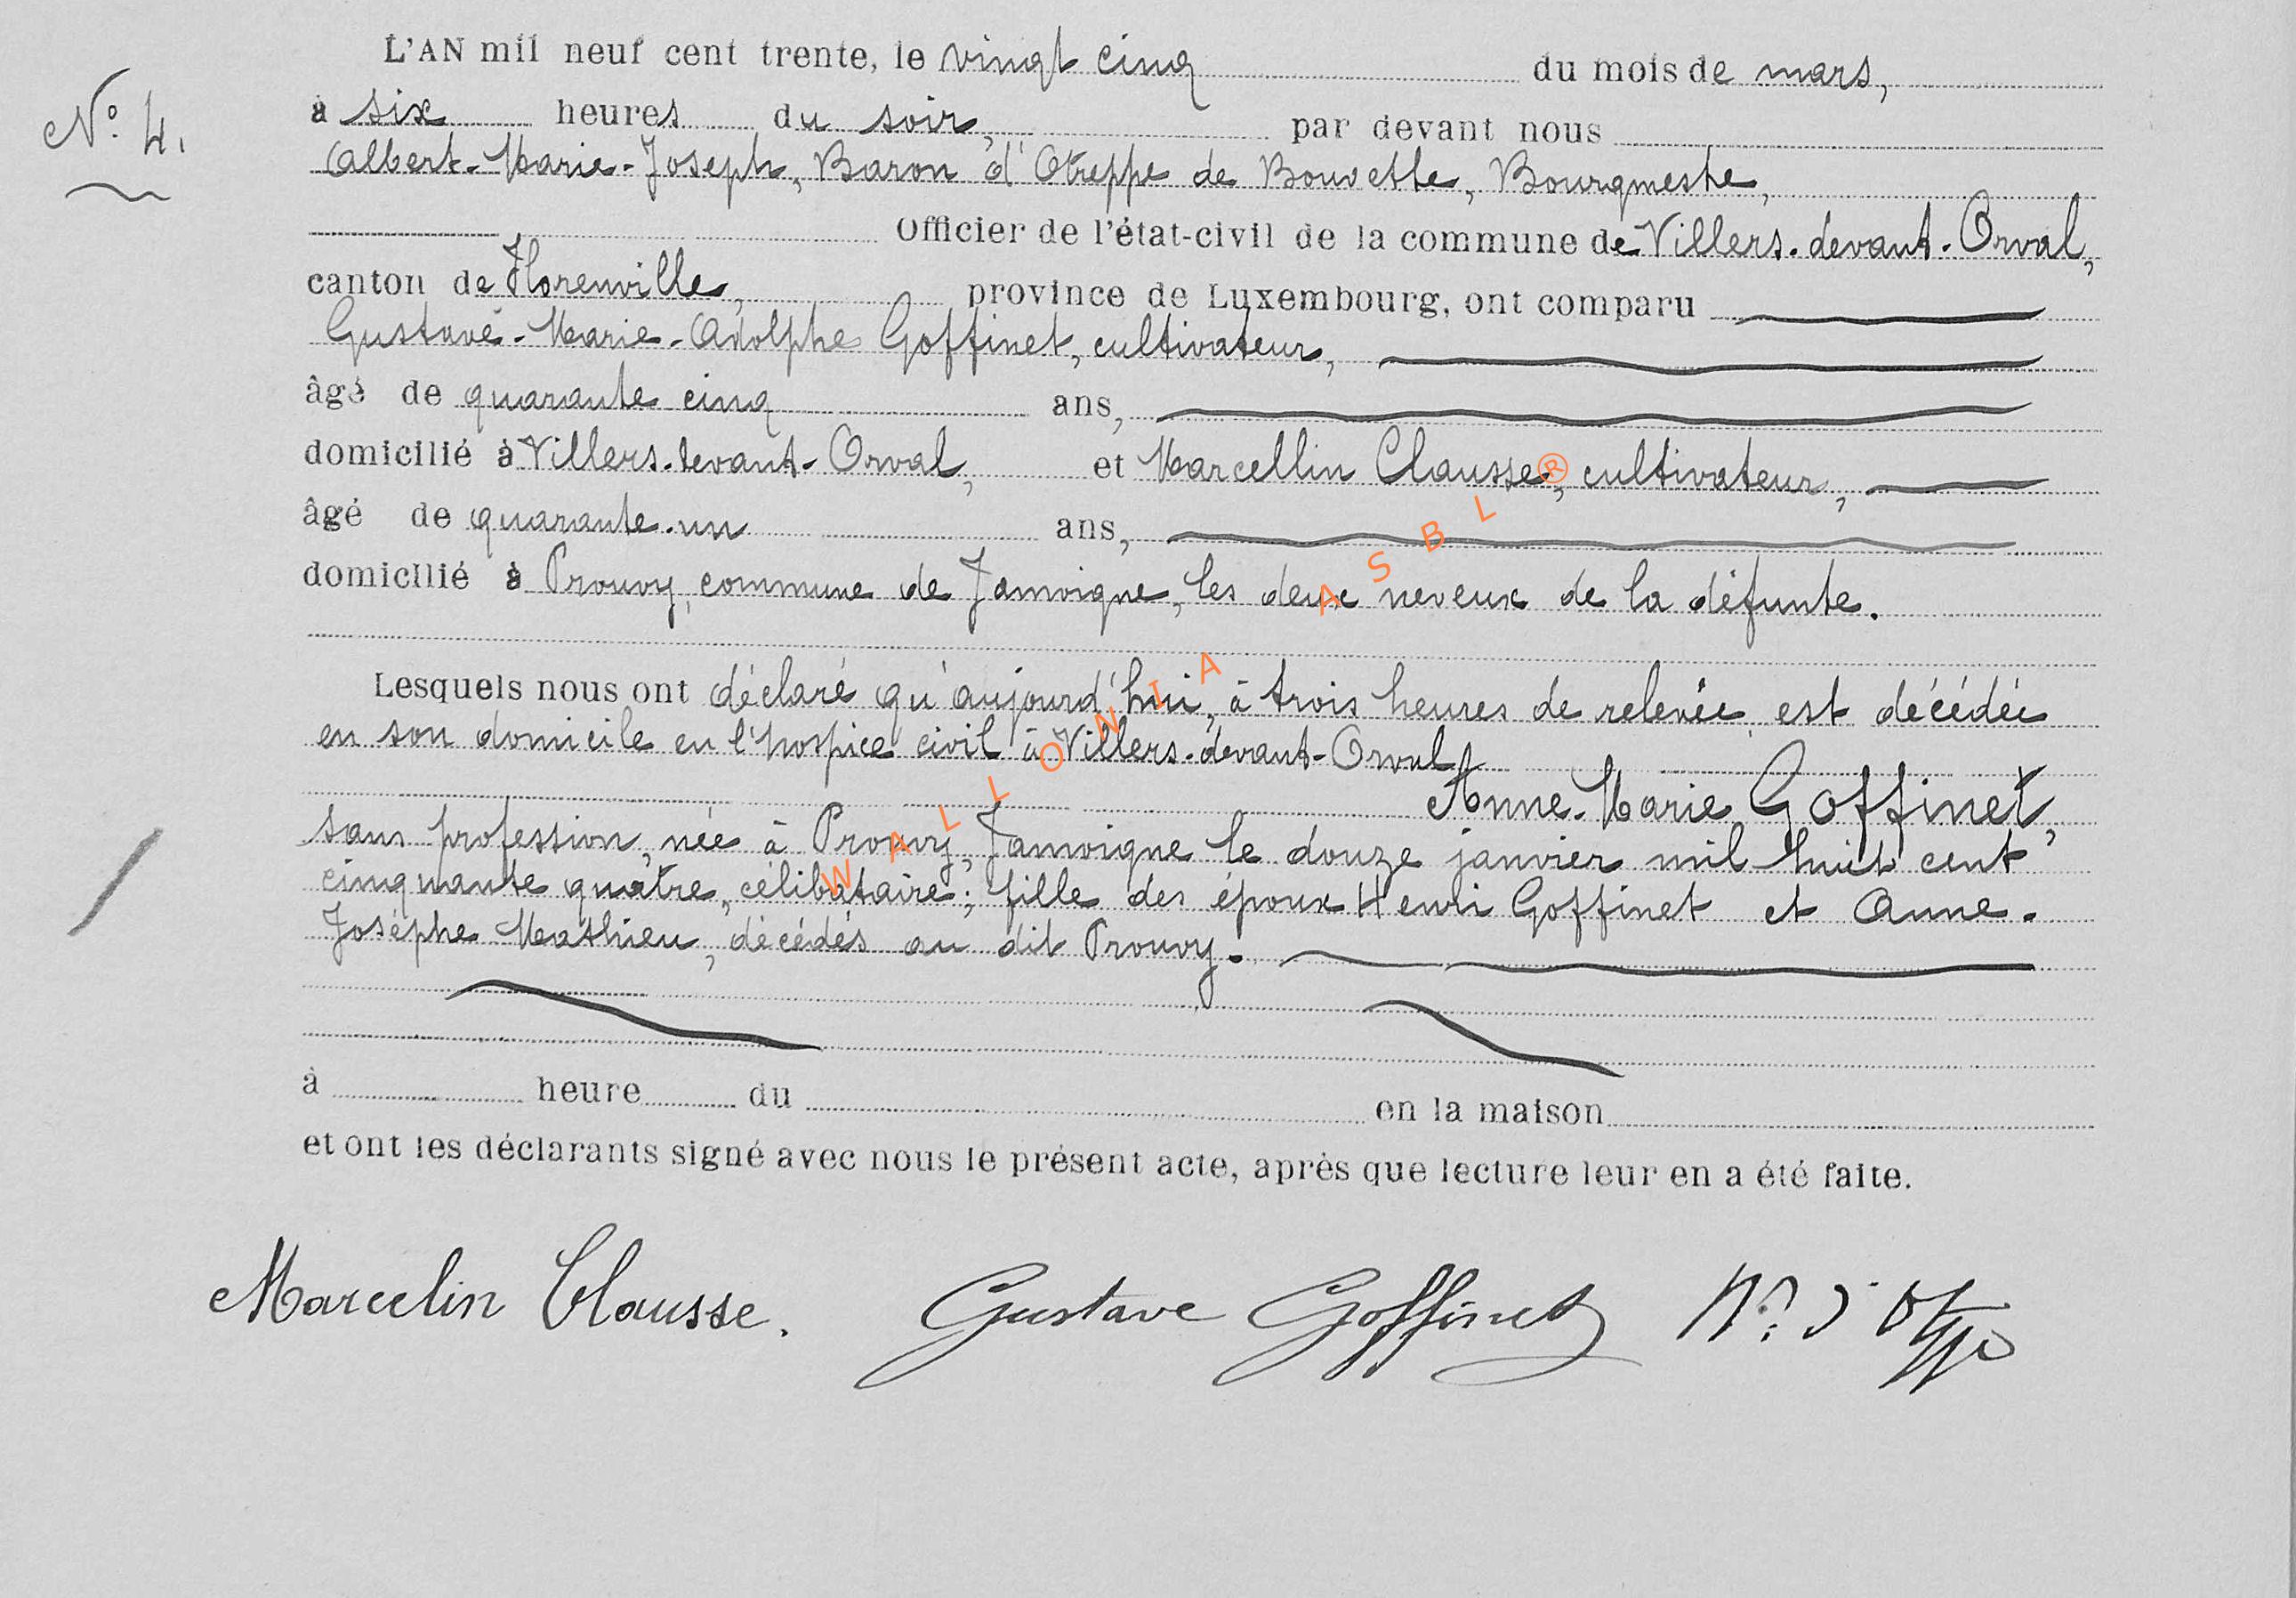 L'AN mil neuf cent trente, le vingt cinq du mois de mars,
N° 4.
à six heures du soir, par devant nous
Albert-Marie-Joseph, Baron d'Otreppe de Bouvette, Bourgmestre,
Officier de l'état-civil de la commune de Villers-devant-Orval,
canton de Florenville, province de Luxembourg, ont comparu
Gustave-Marie-Adolphe Goffinet, cultivateur,
âgé de quarante cinq ans,
domicilié à Villers-devant-Orval, et Marcellin Clausse, cultivateur,
âgé de quarante-un ans,
domicilié à Prouvy, commune de Jamoigne, les deux neveux de la défunte.
Lesquels nous ont déclaré qu'aujourd'hui, à trois heures de relevée, est décédée
en son domicile en l'hospice civil à Villers-devant-Orval
Anne-Marie Goffinet,
sans profession, née à Prouvy, Jamoigne le douze janvier mil huit cent
cinquante quatre, célibataire; fille des époux Henri Goffinet et Anne-
Josèphe Mathieu, décédés au dit Prouvy.
à heure du en la maison
et ont les déclarants signé avec nous le présent acte, après que lecture leur en a été faite.
Marcelin Clausse. Gustave Goffinet
WALLONIA ASBL ®